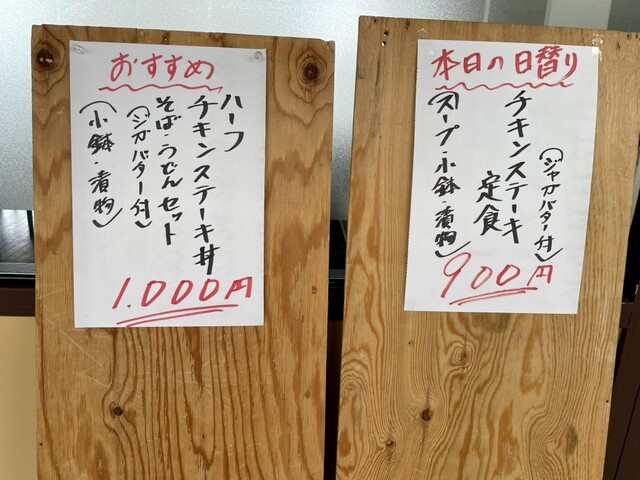 おすすめ
ハーフ
チキンステーキ丼
そば・うどんセット
(ジャガバター付)
(小鉢・漬物)
1.000円
本日の日替り
(ジャガバター付)
チキンステーキ
定食
(スープ・小鉢・漬物)
900円